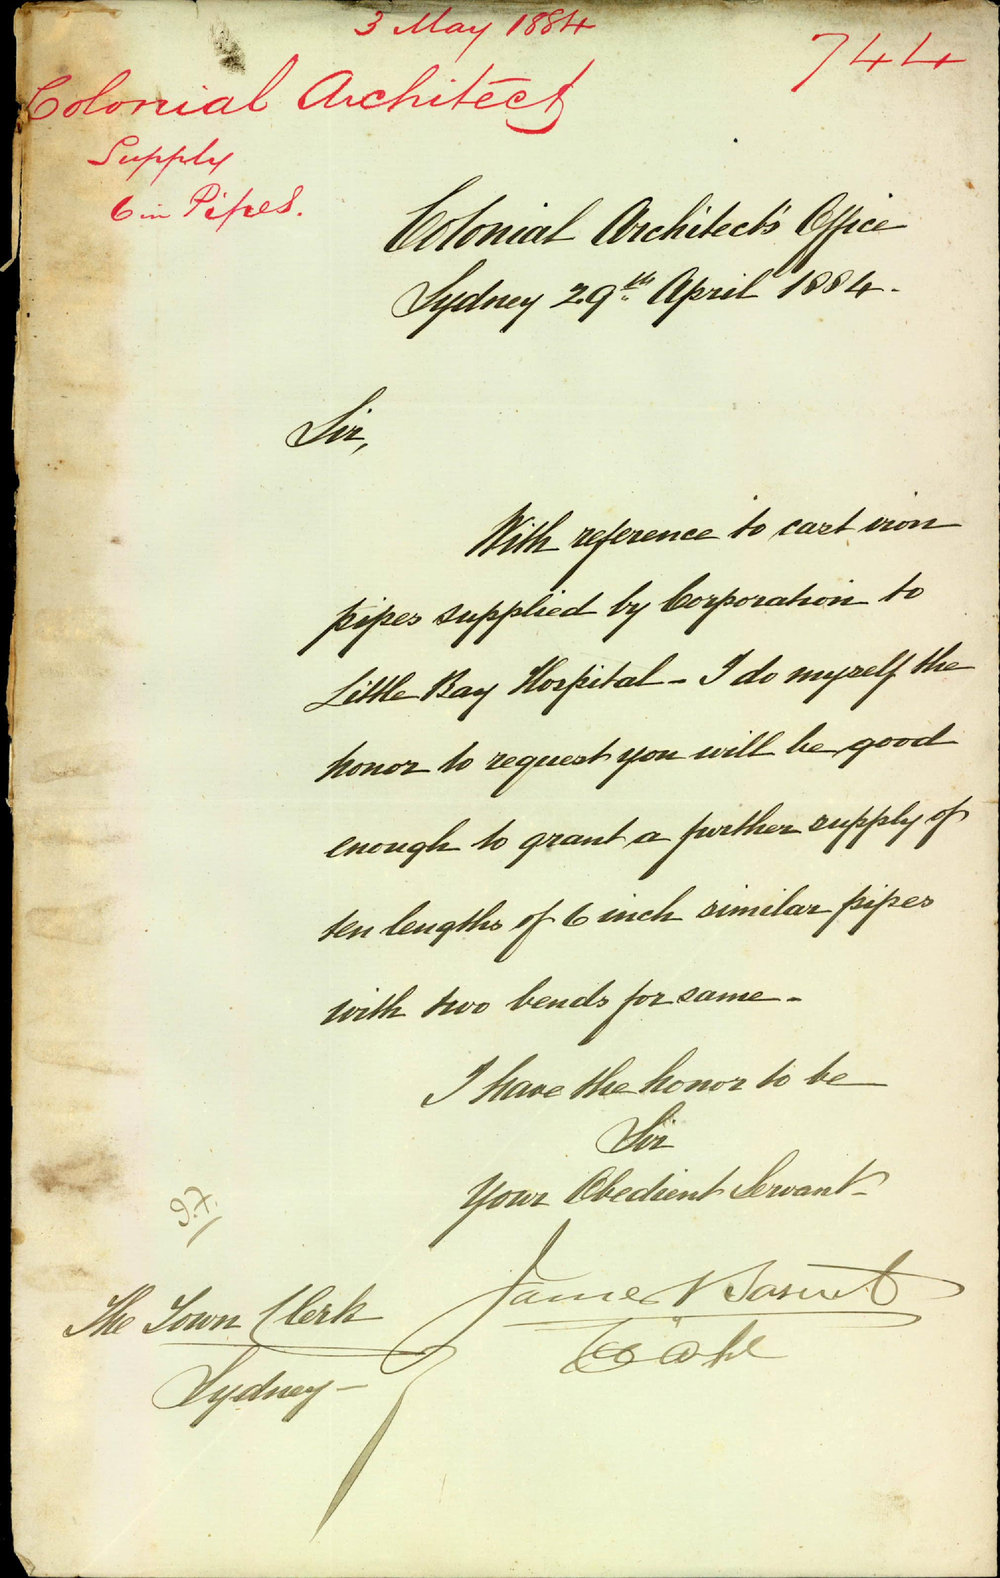 3 May 1884
744
Colonial Architect
Supply
6 in Pipes.
Colonial Architect's Office
Sydney 29th April 1884.
Sir,
With reference to cast iron
pipes supplied by Corporation to
Little Bay Hospital - I do myself the
honor to request you will be good
enough to grant a further supply of
ten lengths of 6 inch similar pipes
with two bends for same -
I have the honor to be
Sir
Your Obedient Servant -
James Barnet
The Town Clerk
Sydney -